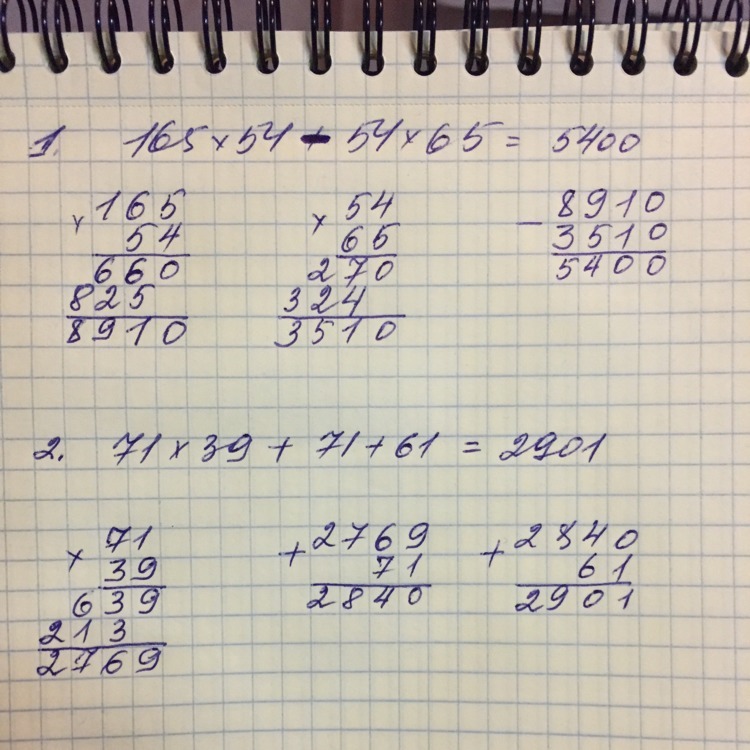 1. 165 × 54 - 54 × 65 = 5400
× 165
54
660
825
8910
× 54
65
270
324
3510
- 8910
3510
5400
2. 71 × 39 + 71 + 61 = 2901
× 71
39
639
213
2769
+ 2769
71
2840
+ 2840
61
2901